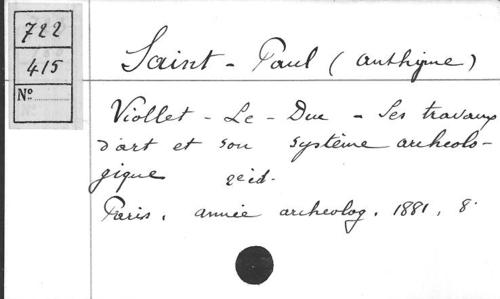 722
415
Nº
Saint-Paul (anthyme)
Viollet-Le-Duc - Ses travaux
d'art et son système archeolo-
gique 2e éd.
Paris, année archeolog. 1881, 8º